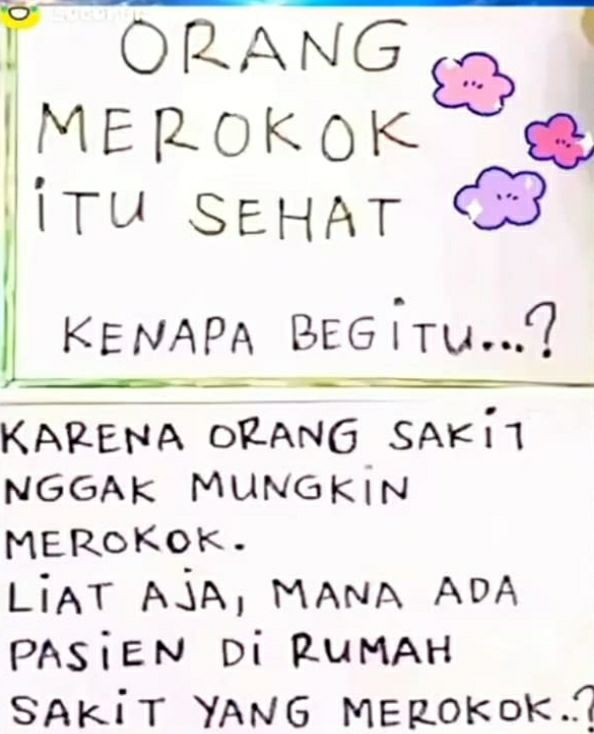 ORANG
MEROKOK
iTU SEHAT
KENAPA BEGiTU...?
KARENA ORANG SAKiT
NGGAK MUNGKiN
MEROKOK.
LiAT AJA, MANA ADA
PASiEN Di RUMAH
SAKiT YANG MEROKOK..?